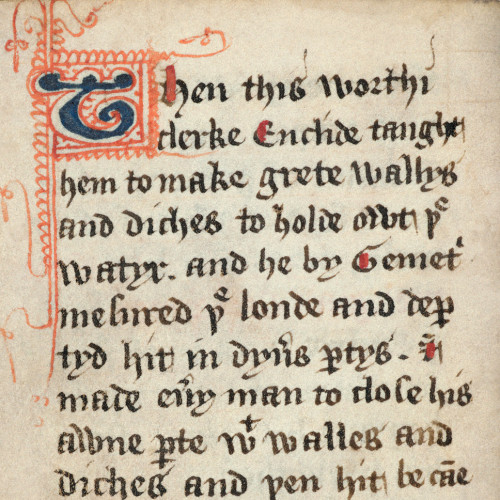 Then this worthi
clerke Euclide taught
hem to make grete wallys
and diches to holde owt þͤ
watyr. and he by Gemetͬ
mesured þͤ londe and dep̱
tyd hit in dyuͬs ꝑtys. ⁊
made euͬy man to close his
awne ꝑte wͭ walles and
diches and þen hit becāe